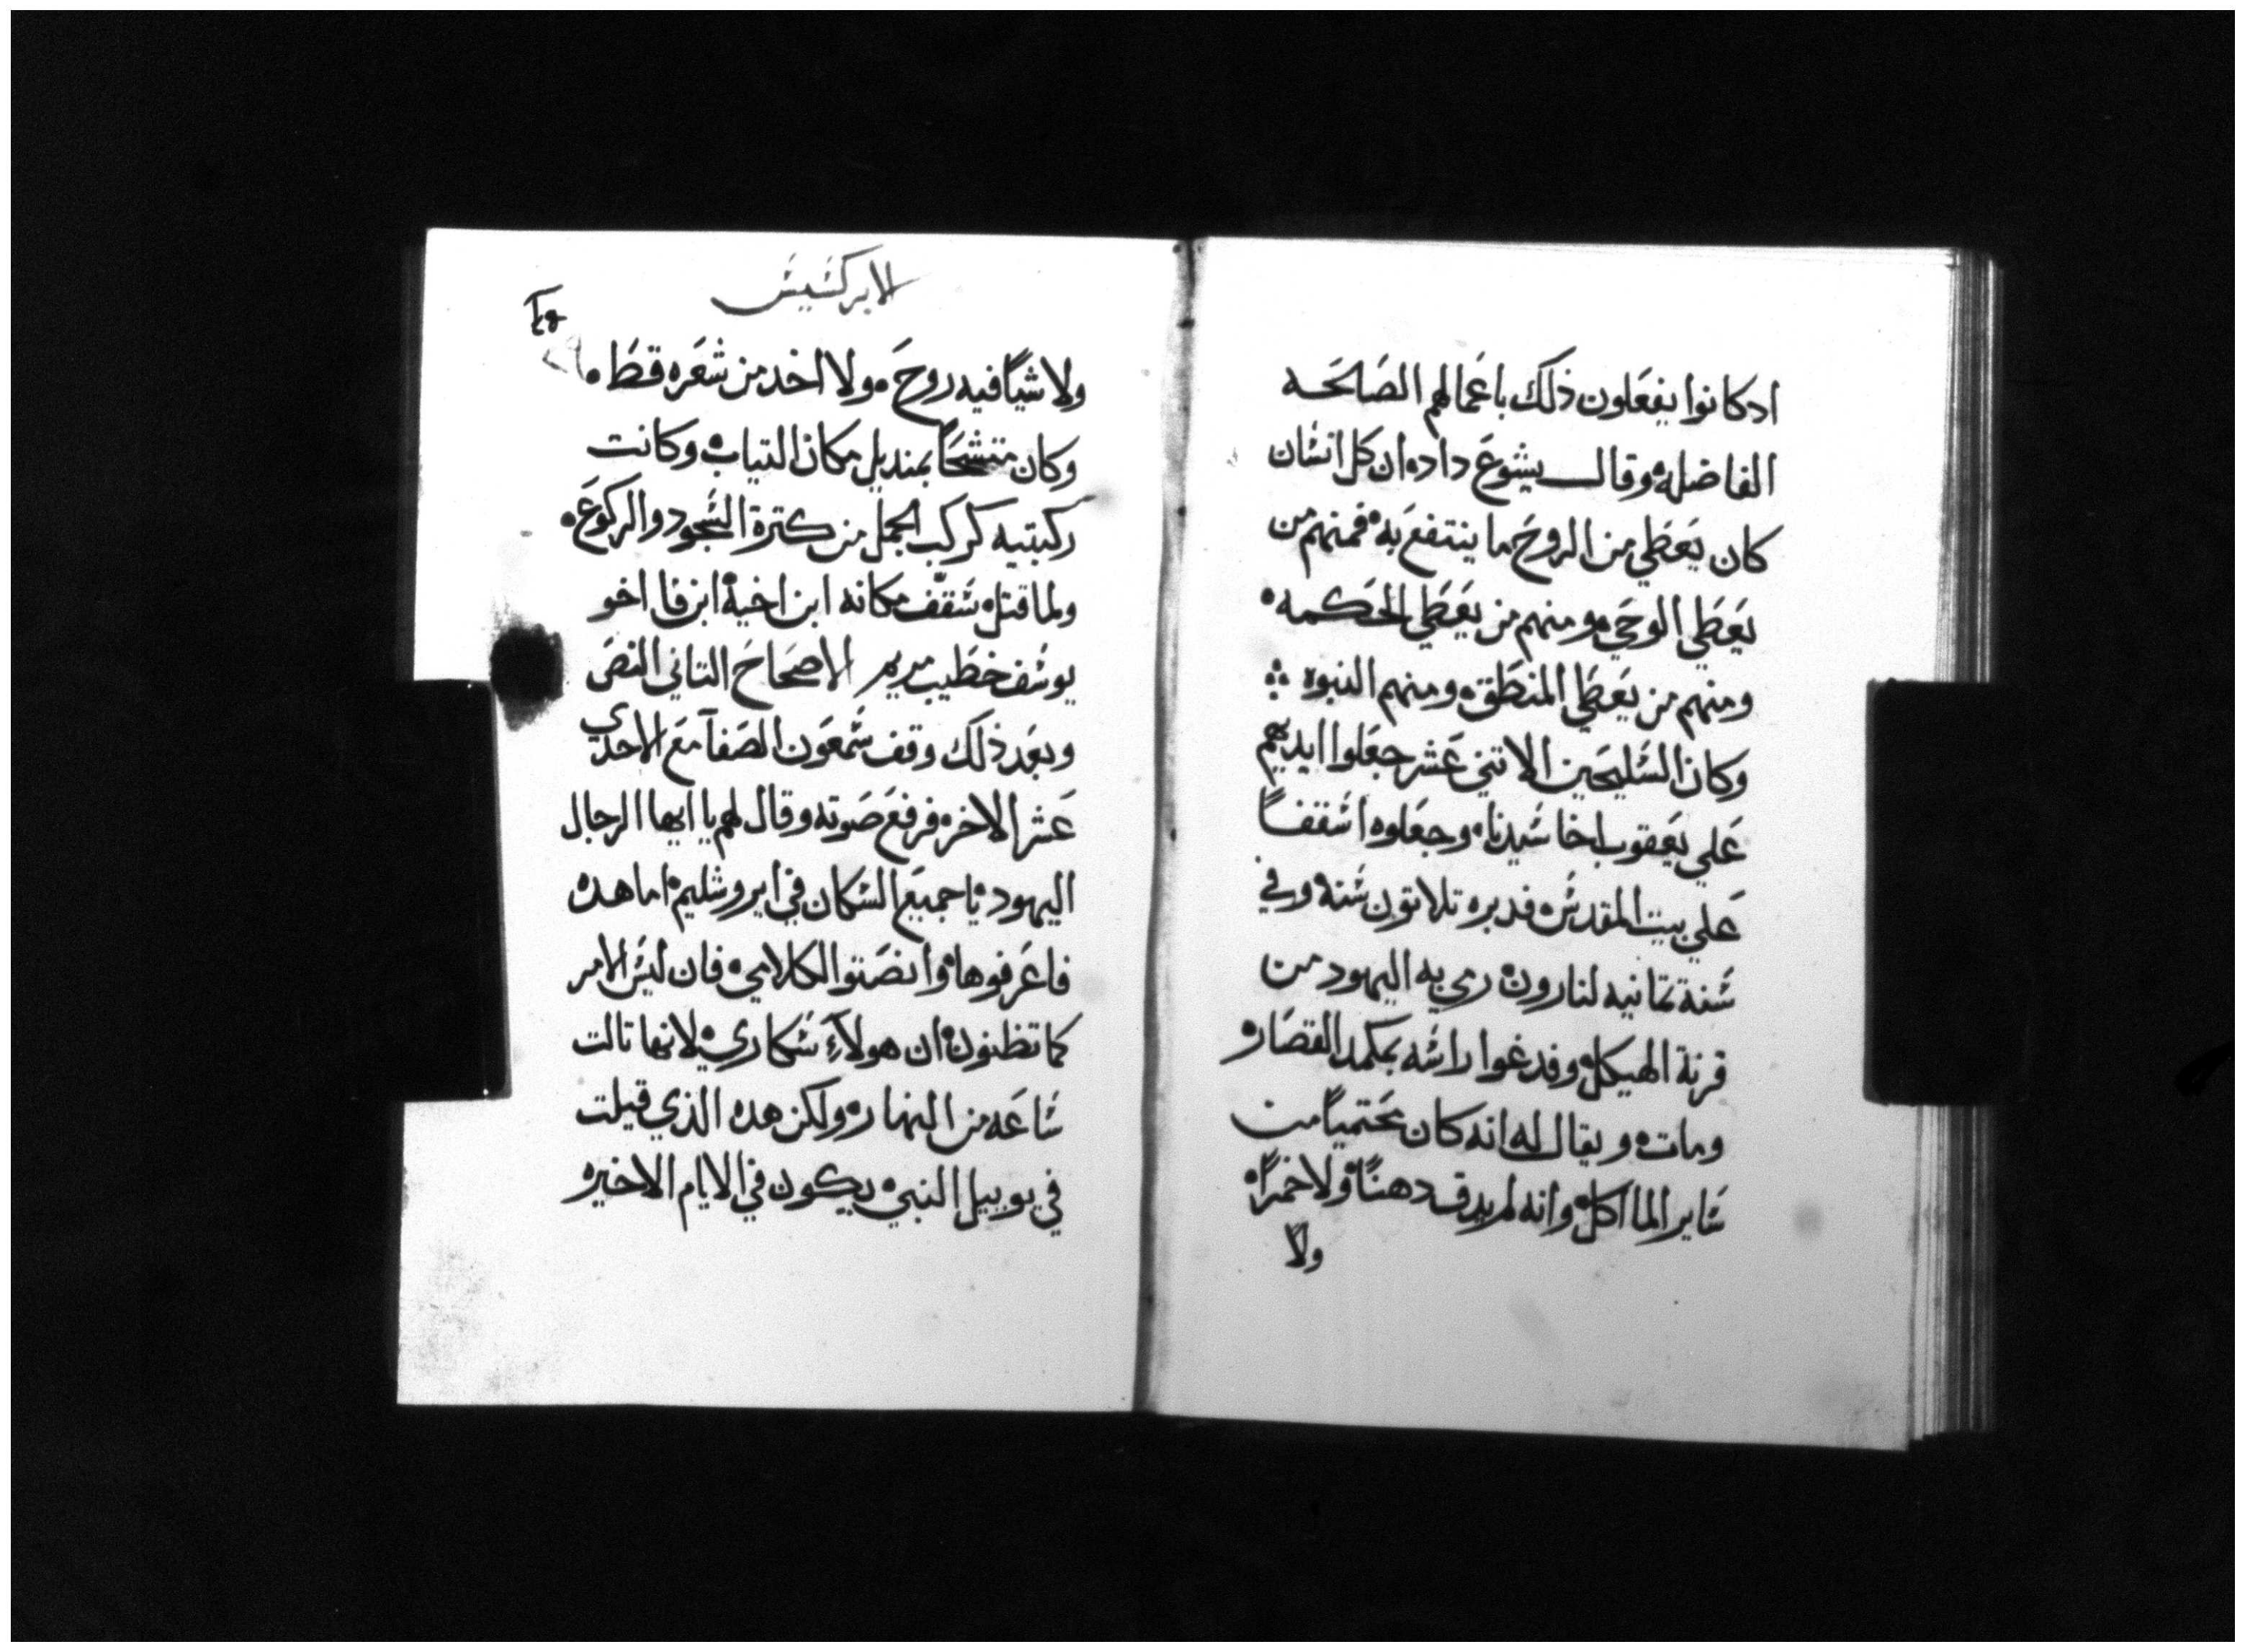 ادكانوا يفعلون ذلك باعمالهم الصالحه
الفاضله وقال يشوع داده ان كل انسان
كان يعطي من الروح ما ينتفع به فمنهم من
يعطي الوحي ومنهم من يعطي الحكمه
ومنهم من يعطي المنطق ومنهم النبوه
وكان السليحين الاتني عشر جعلوا ايديهم
علي يعقوب اخا سيدنا وجعلوه اسقفاً
علي بيت المقدس فدبره تلاتون سنه وفي
سنة تمانيه لنارون رمي به اليهود من
قرنة الهيكل وفدغوا راسه بكمد القصار
ومات ويقال له انه كان محتمياً من
ساير الما اكل وانه لم يدق دهناً ولا خمراً
ولا
الابركسيس
ولا شياً فيه روح ولا اخد من شعره قط
وكان متشحاً بمنديل مكان التياب وكانت
ركبتيه كركب الجمل من كترة السجود والركوع
ولما قتل سقف مكانه ابن اخيه ابن فا اخو
يوسف خطيب مريم الاصحاح التاني النص
وبعد ذلك وقف شمعون الصفا مع الاحدي
عشر الاخره فرفع صوته وقال لهم يا ايها الرجال
اليهود يا جميع السكان في ايروشليم اما هده
فاعرفوها وانصتوا لكلامي فان ليس الامر
كما تظنون ان هولآء سكاري لانها تالت
ساعه من النهار ولكن هده الذي قيلت
في يوبيل النبي يكون في الايام الاخيره